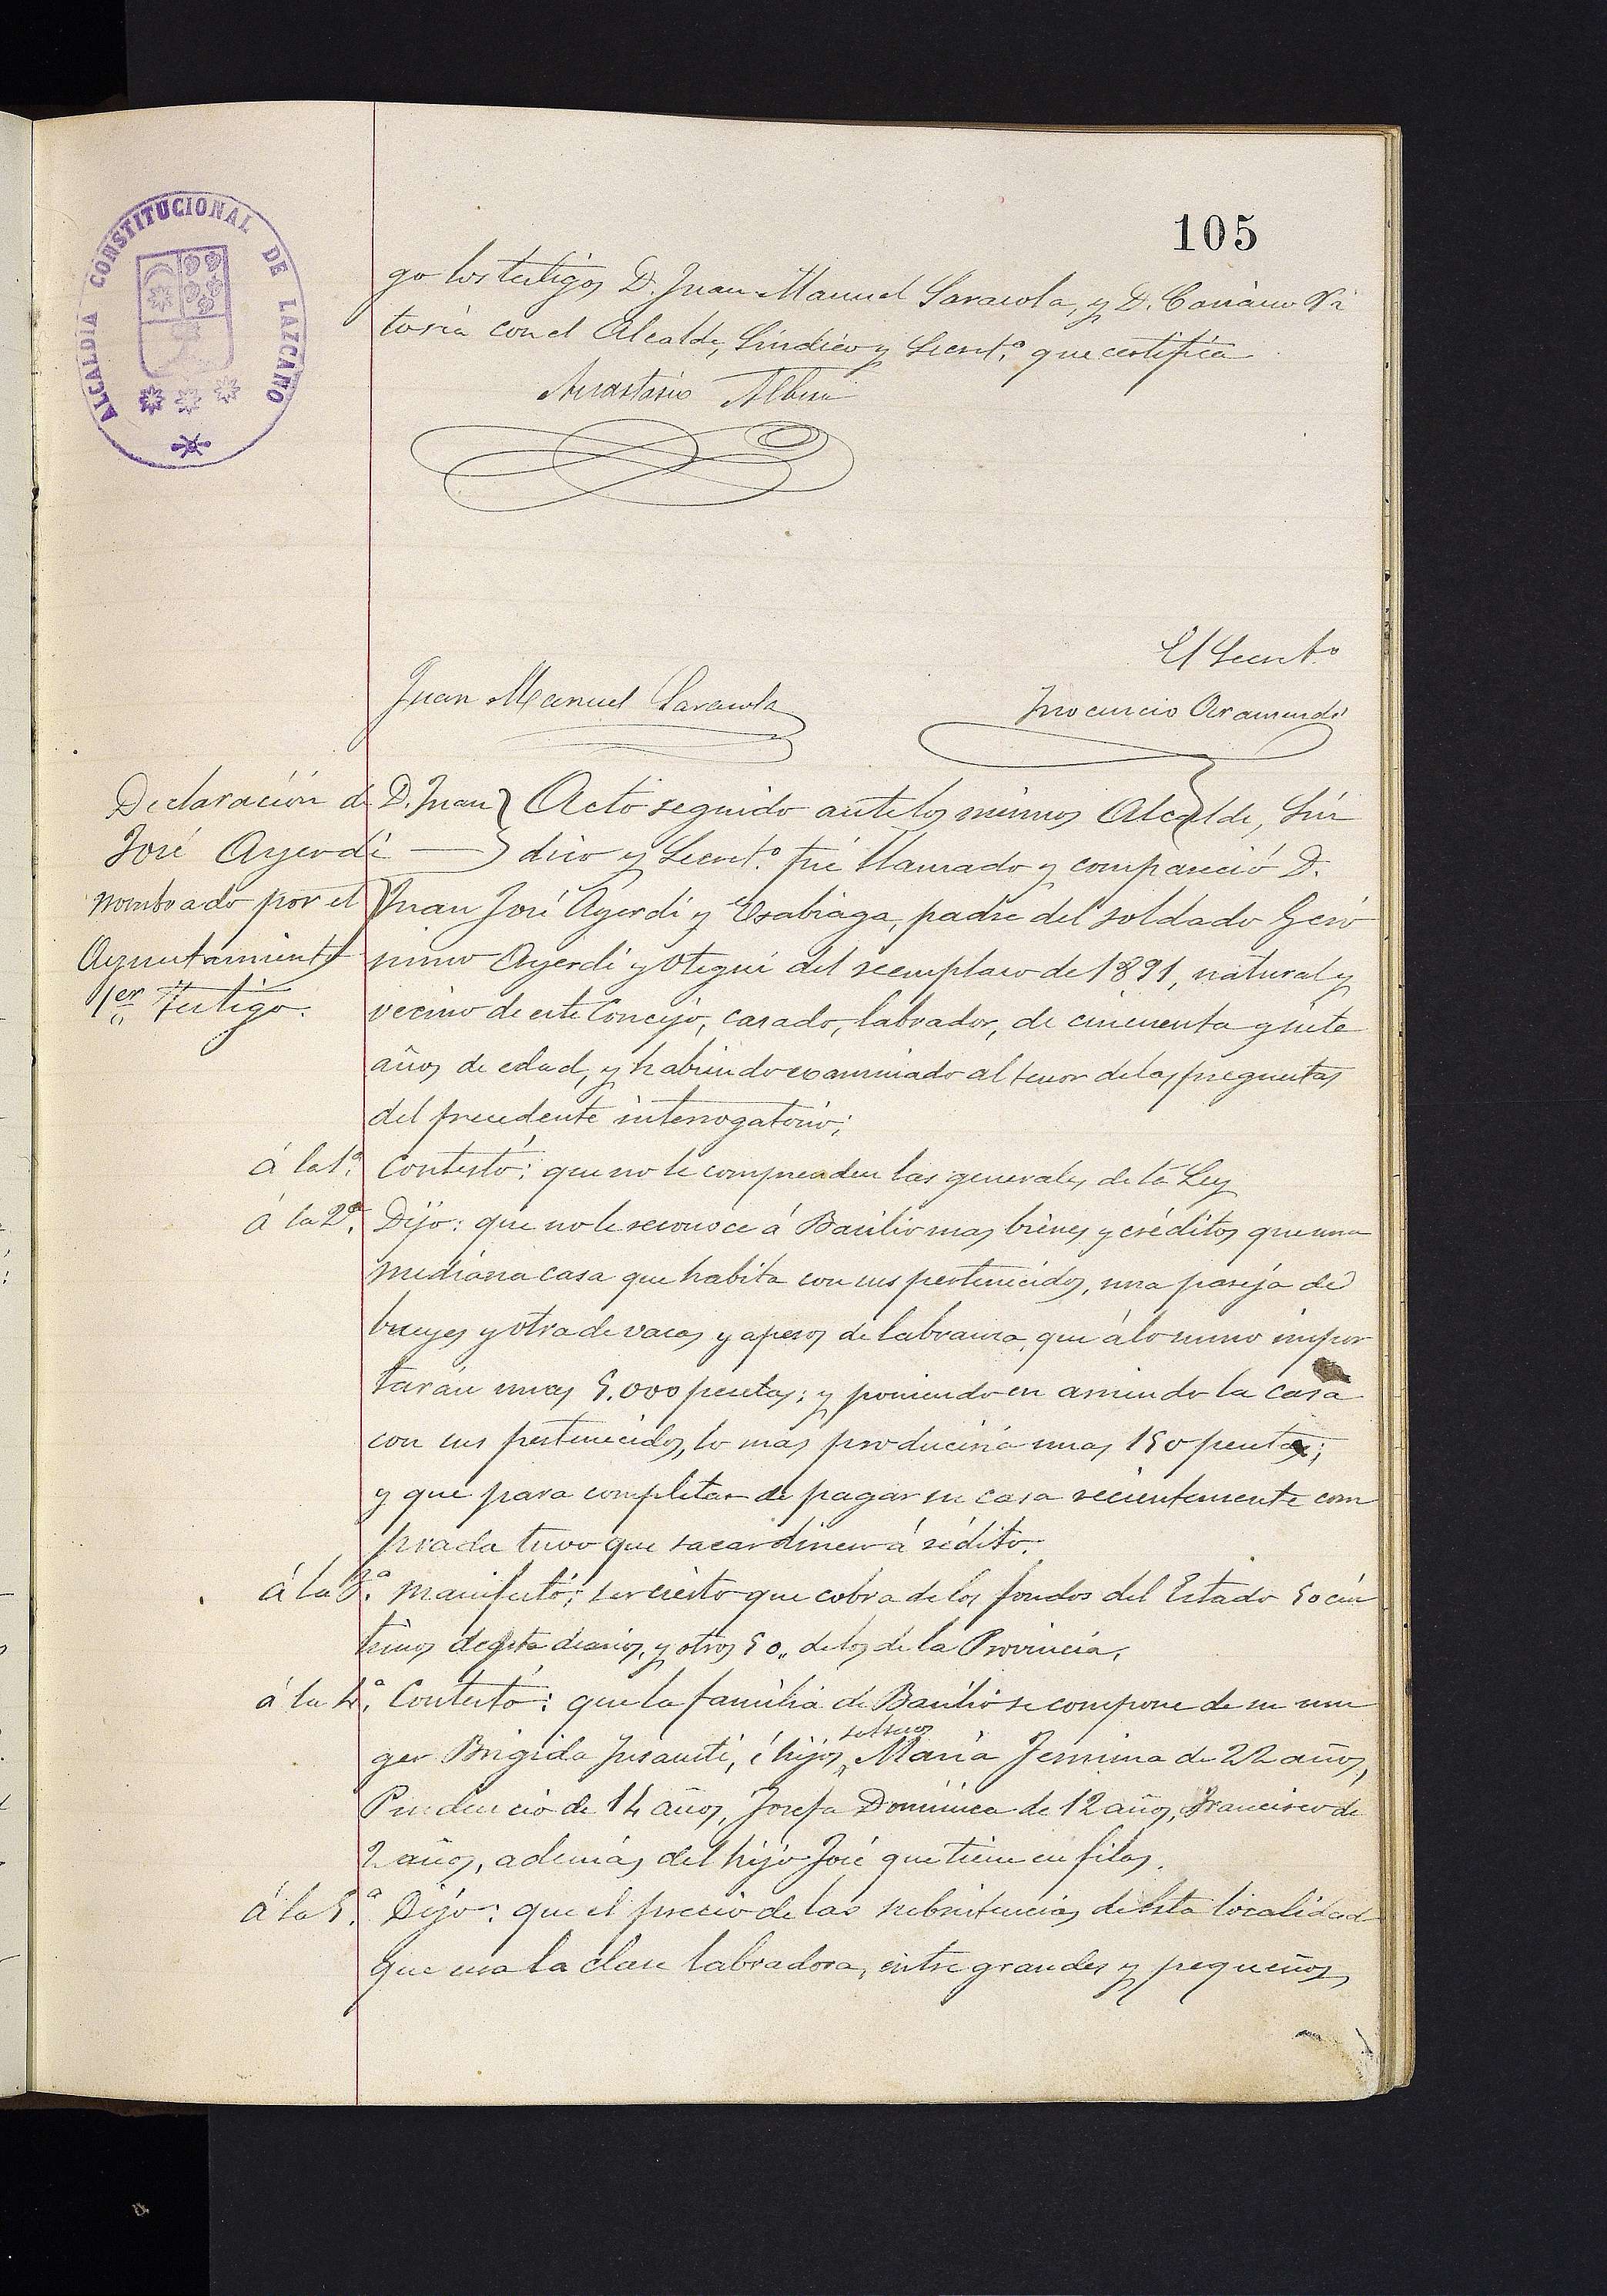 105
ALCALDÍA CONSTITUCIONAL DE LAZCANO
go los testigos D. Juan Manuel Sarasola, y D. Casiano Vi
toria con el Alcalde, Síndico y Secret.º que certifica
Anastasio Albisu
El Secret.º
Juan Manuel Sarasola
Inocencio Aramendi
Declaración de D. Juan
José Ayerdi
nombrado por el
Ayuntamiento
1.er Testigo.
Acto seguido ante los mismos Alcalde, Sín
dico y Secret.º fué llamado y compareció D.
Juan José Ayerdi y Esabiaga, padre del soldado Geró
nimo Ayerdi y Otegui del reemplazo de 1891, natural y
vecino de este Concejo, casado, labrador, de cincuenta y siete
años de edad, y habiendo examinado al tenor de las preguntas
del precedente interrogatorio;
á la 1.ª Contestó: que no le comprenden las generales de la Ley
á la 2.ª Dijo: que no le reconoce á Basilio mas bienes y créditos que una
mediana casa que habita con sus pertenecidos, una pareja de
bueyes y otra de vacas y aperos de labranza, que á lo sumo impor
tarán unas 5.000 pesetas; y poniendo en arriendo la casa
con sus pertenecidos, lo mas produciria unas 150 pesetas;
y que para completar de pagar su casa recientemente com
prada tuvo que sacar dinero á rédito.
á la 3.ª Manifestó: ser cierto que cobra de los fondos del Estado 50 cén
timos de pta diarios, y otros 50 „ de los de la Provincia.
á la 4.ª Contestó: que la familia de Basilio se compone de su mu
ger Brigida Insausti, é hijos solteros Maria Jesusina de 22 años,
Prudencio de 14 años, Josefa Dominica de 12 años, Francisco de
2 años, además del hijo José que tiene en filas.
á la 5.ª Dijo: que el precio de las subsistencias de esta localidad
que usa la clase labradora, entre grandes y pequeños,